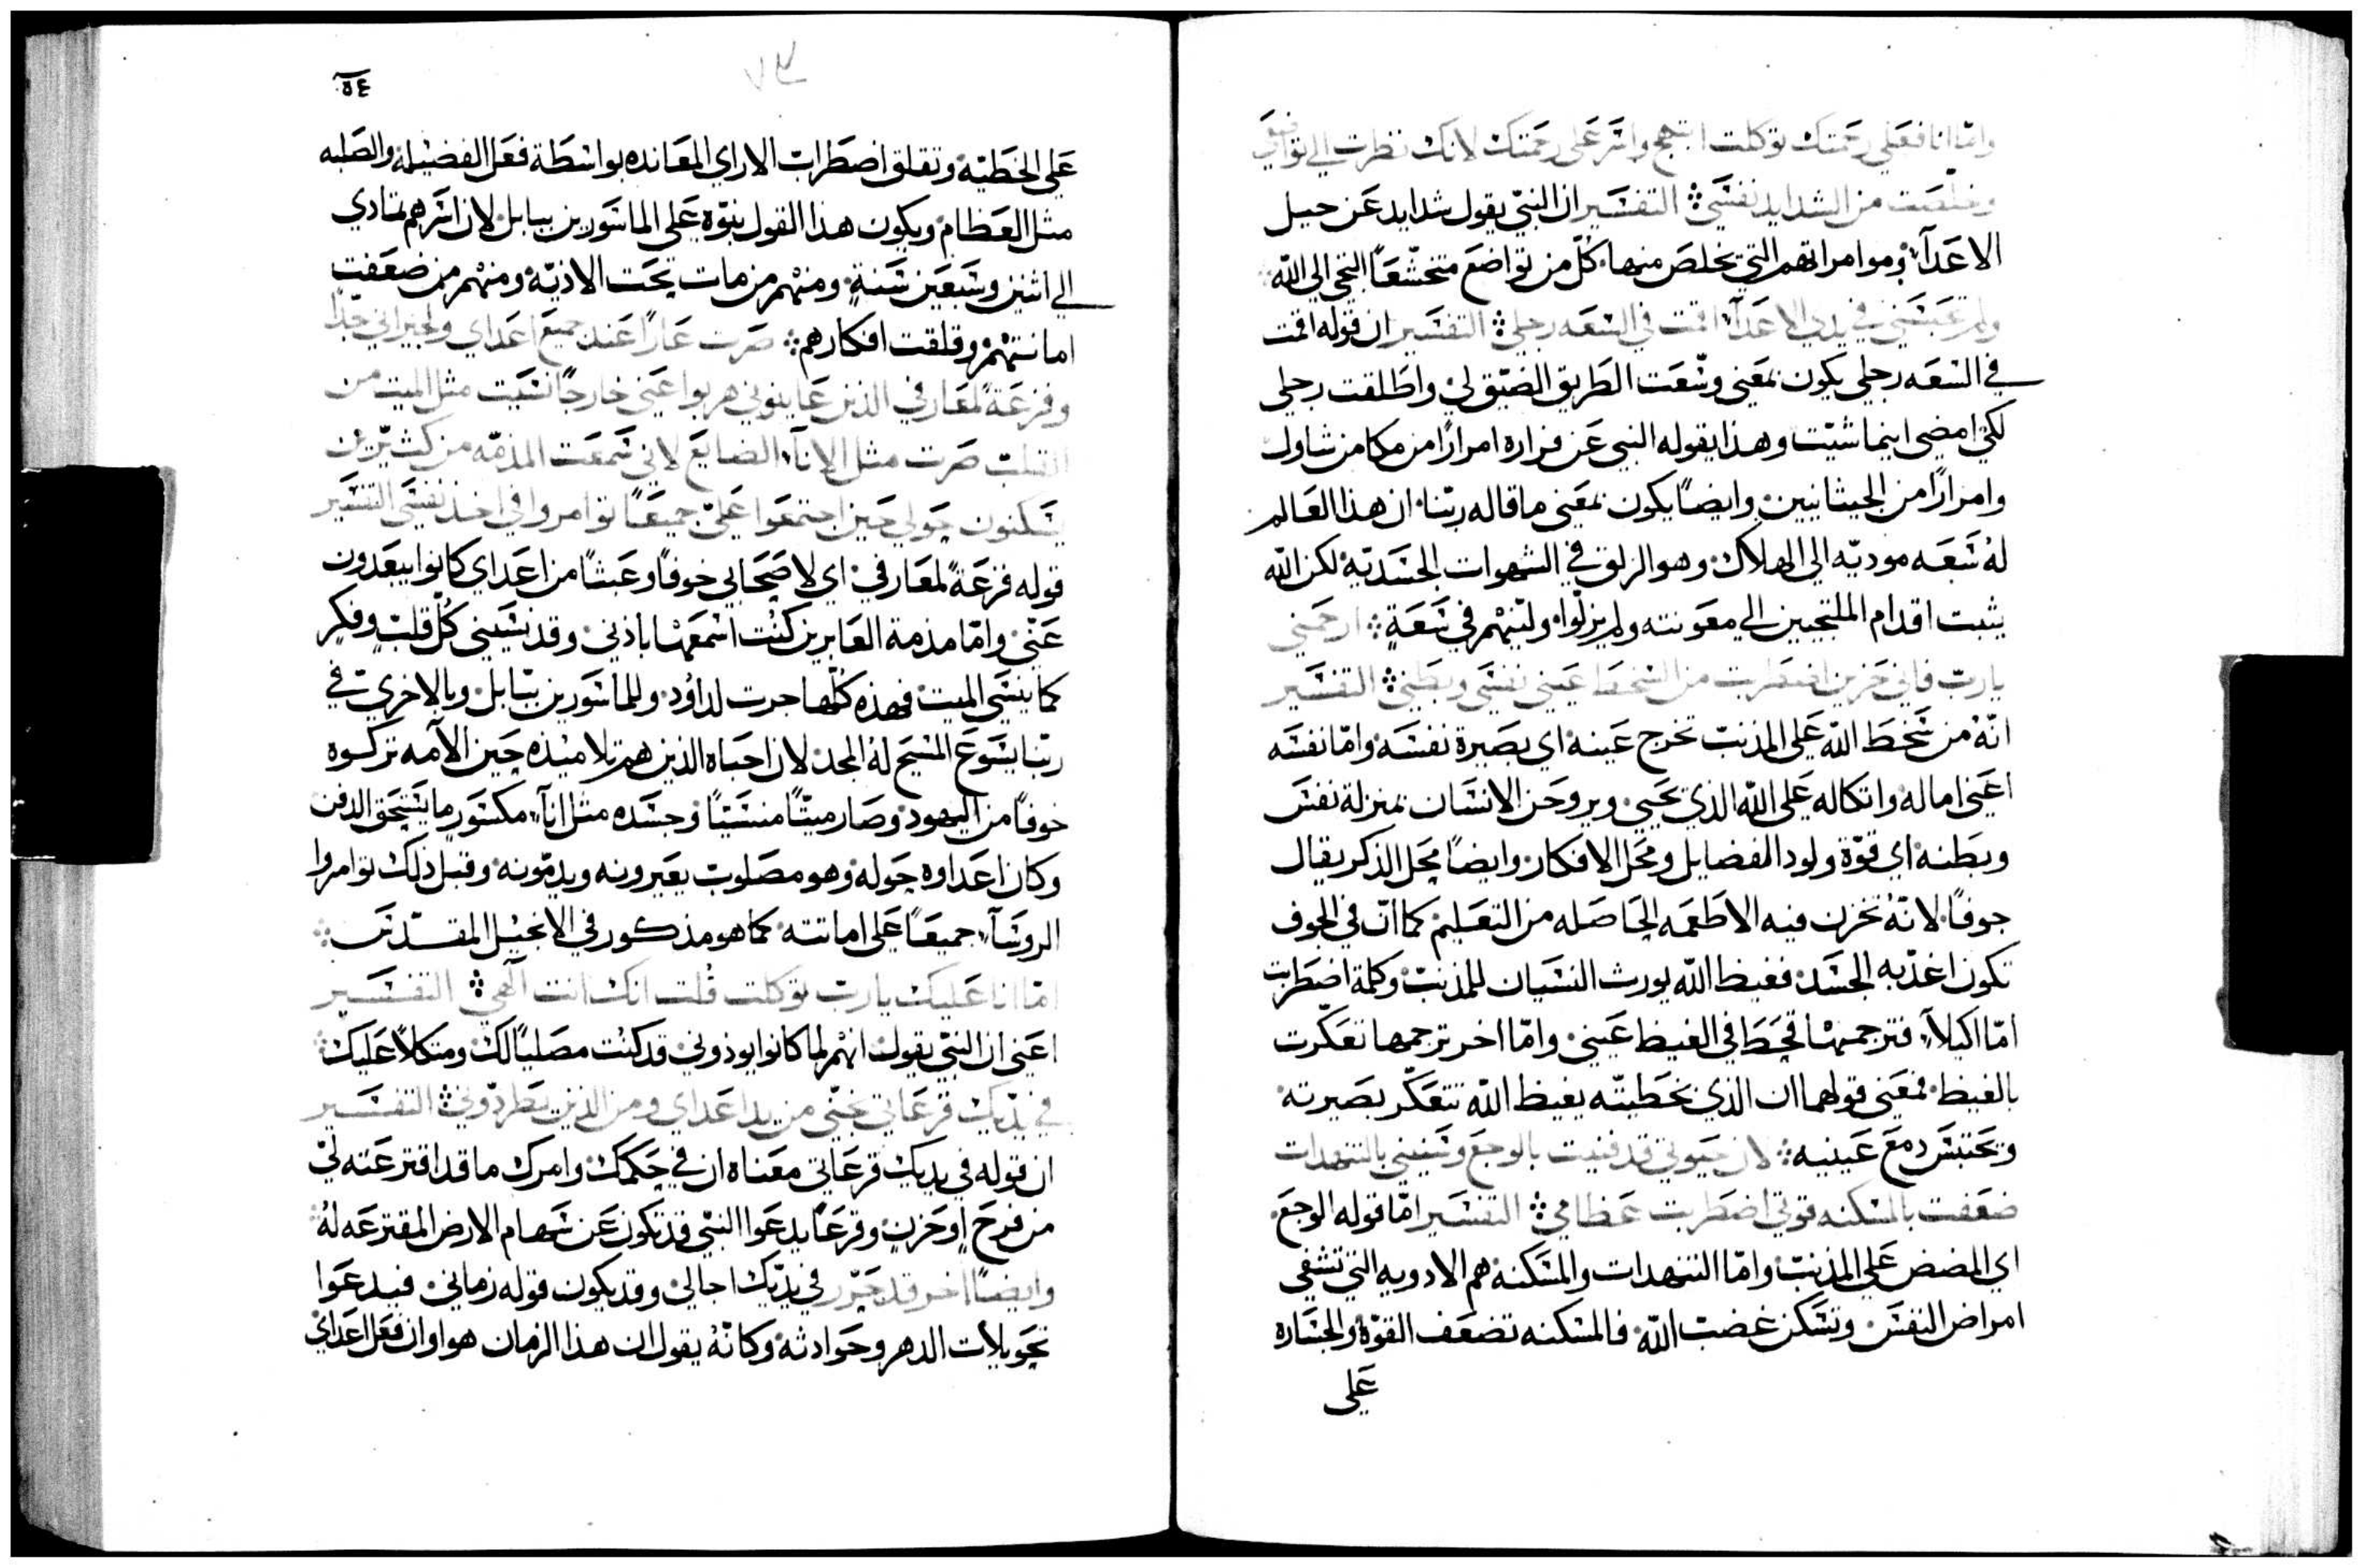 واما انا فعلى رحمتك توكلت ابتهج واسر على رحمتك لانك نظرت الى تواضعي
وخلصت من الشدايد نفسي التفسير ان النبي يقول شدايد عن حيل
الاعدآء وموامراتهم التي يخلص منها كل من تواضع متخشعاً التجى الى الله
ولم تحبسني في يدي الاعدآء اقمت في السعه رجلي التفسير ان قوله اقمت
في السعه رجلي يكون بمعنى وسّعت الطريق الضيق لي واطلقت رجلي
لكي امضي اينما شيت وهذا يقوله النبي عن فراره امراراً من مكامن شاول
وامراراً من الجيثانيين وايضاً يكون بمعنى ما قاله ربنا ان هذا العالم
له سعه موديه الى الهلاك وهو الزلق في الشهوات الجسديه لكن الله
يثبت اقدام الملتجيين الى معونته ولم يزلوا وليّنهم في سعةٍ ارحمني
يارب فاني حزين اضطربت من السخط عيني نفسي وبطني التفسير
انّه من سخط الله على المذنب تخرج عينه اي بصيرة نفسه وامّا نفسه
اعني اماله واتكاله على الله الذي يحيي ويروحن الانسان بمنزلة نفس
وبطنه اي قوّة ولود الفضايل ومحل الافكار وايضاً محل الذكر يقال
جوفاً لانّه تخزن فيه الاطعمه الحاصله من التعليم كما انّ في الجوف
تكون اغذيه الجسد فغيظ الله يورث النسيان للمذنب وكلمة اضطربت
امّا اكيلاّ فترجمها قحط في الغيظ عيني وامّا اخر ترجمها تعكّرت
بالغيظ فمعنى قولهما ان الذي بخطيته يغيظ الله تتعكّر بصيرته
وتحتبس دمع عينيه لان حيوتي قد فنيت بالوجع وسنيني بالتنهدات
ضعفت بالمسكنه قوتي اضطربت عظامي التفسير امّا قوله الوجع
اي المضض على المذنب وامّا التنهدات والمسكنه هم الادويه التي تشفي
امراض النفس وتسكن غضب الله فالمسكنه تضعف القوّة والجساره
على
٥٤
على الخطيّه وتقلق اضطرابت الاراي المعانده بواسطة فعل الفضيله والصلبه
مثل العظام ويكون هذا القول نبوّه على الماسورين ببابل لان اسرهم تمادي
الى اثنين وسبعين سنةٍ ومنهم من مات تحت الاذيّه ومنهم من ضعفت
امانتهم وقلقت افكارهم صرت عاراً عند جميع اعداي ولجيراني جدّا
وفزعةً لمعارفي الذين عاينوني هربوا عني خارجاً نسيت مثل الميت من
القلب صرت مثل الانآء الضايع لاني سمعت المذمّه من كثيرين
يسكنون حولي حين اجتمعوا عليّ جميعاً توامروا في اخذ نفسي التفسير
قوله فزعةً لمعارفي اي لاصحابي خوفاً وعبثاً من اعداي كانوا يبعدون
عنّي وامّا مذمة العابرين كنت اسمعها باذني وقد نسيني كلّ قلبٍ وفكر
كما ينسي الميت فهذه كلّها جرت لداوُد وللماسورين ببابل وبالاحري في
ربّنا يسوع المسيح لهُ المجد لان احباه الذين هم تلاميذه حين الآمه تركوه
خوفاً من اليهود وصار ميتاً منسيّاً وجسده مثل انآء مكسور ما يستحق الدفن
وكان اعداوه حوله وهو مصلوب يعيرونه ويذمّونه وقبل ذلك توامروا
الروسآء جميعاً على امانته كما هو مذكور في الانجيل المقدّس
امّا انا عليك يارب توكلت قُلت انك انت آلهي التفسير
اعني ان النبي يقول انهم لما كانوا يوذوني قد كنت مصلياً لك ومتكلاً عليك
في يديك قرعاتي نجّني من يد اعداي ومن الذين يطردوني التفسير
ان قوله في يديك قرعاتي معناه ان في حكمك وامرك ما قد اقترعته لي
من فرح او حزن وقرعاً يدعوا النبي قد تكون عن سهام الارض المقترعه لهُ
وايضاً اخر قد حرّر في يديك اجالي وقد يكون قوله زماني فيدعوا
تحويلات الدهر وحوادثه وكانّهُ يقول ان هذا الزمان هو اوان فعل اعداي